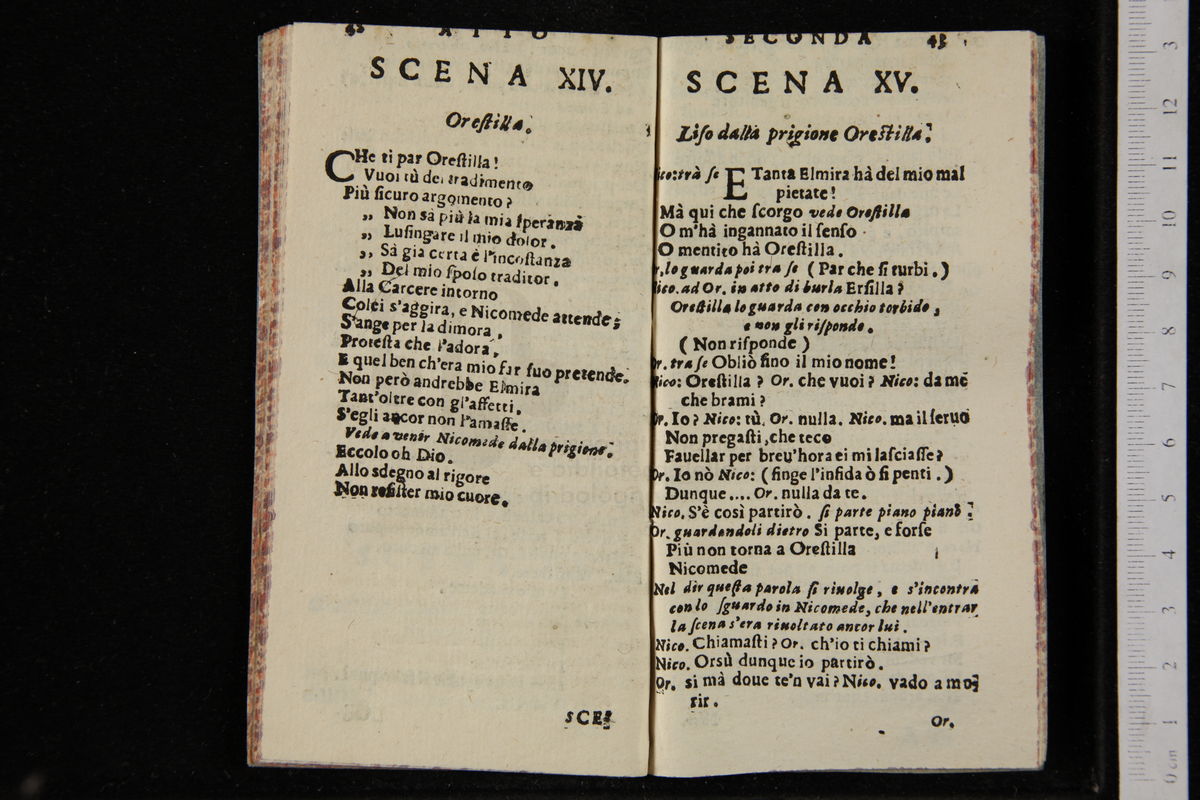 42 ATTO
SCENA XIV.
Oreſtilla.
CHe ti par Oreſtilla!
Vuoi tù del tradimento
Più ſicuro argomento?
„ Non sà più la mia ſperanza
„ Luſingare il mio dolor.
„ Sà già certa è l'incoſtanza
„ Del mio ſpoſo traditor.
Alla Carcere intorno
Colei s'aggira, e Nicomede attende;
S'ange per la dimora,
Proteſta che l'adora,
E quel ben ch'era mio far ſuo pretende.
Non però andrebbe Elmira
Tant'oltre con gl'affetti,
S'egli ancor non l'amaſſe.
Vede a venir Nicomede dalla prigione.
Eccolo oh Dio.
Allo sdegno al rigore
Non reſiſter mio cuore.
SCE-
SECONDA 43
SCENA XV.
Liſo dalla prigione Oreſtilla.
Nico: trà ſe E Tanta Elmira hà del mio mal
pietate!
Mà qui che ſcorgo vede Oreſtilla
O m'hà ingannato il ſenſo
O mentito hà Oreſtilla.
Or. lo guarda poi tra ſe (Par che ſi turbi.)
Nico. ad Or. in atto di burla Erſilla?
Oreſtilla lo guarda con occhio torbido,
e non gli riſponde.
(Non riſponde)
Or. tra ſe Obliò ſino il mio nome!
Nico: Oreſtilla? Or. che vuoi? Nico: da me
che brami?
Or. Io? Nico: tù. Or. nulla. Nico. ma il ſeruo
Non pregaſti, che teco
Fauellar per breu'hora ei mi laſciaſſe?
Or. Io nò Nico: (finge l'infida ò ſi penti.)
Dunque.... Or. nulla da te.
Nico. S'è così partirò. ſi parte piano piano.
Or. guardandoli dietro Si parte, e forſe
Più non torna a Oreſtilla
Nicomede
Nel dir queſta parola ſi riuolge, e s'incontra
con lo ſguardo in Nicomede, che nell'entrar
la ſcena s'era riuoltato ancor lui.
Nico. Chiamaſti? Or. ch'io ti chiami?
Nico. Orsù dunque io partirò.
Or. si mà doue te'n vai? Nico. vado a mo-
rir.
Or.
3
12
11
10
9
8
7
6
5
4
3
2
1
0 cm